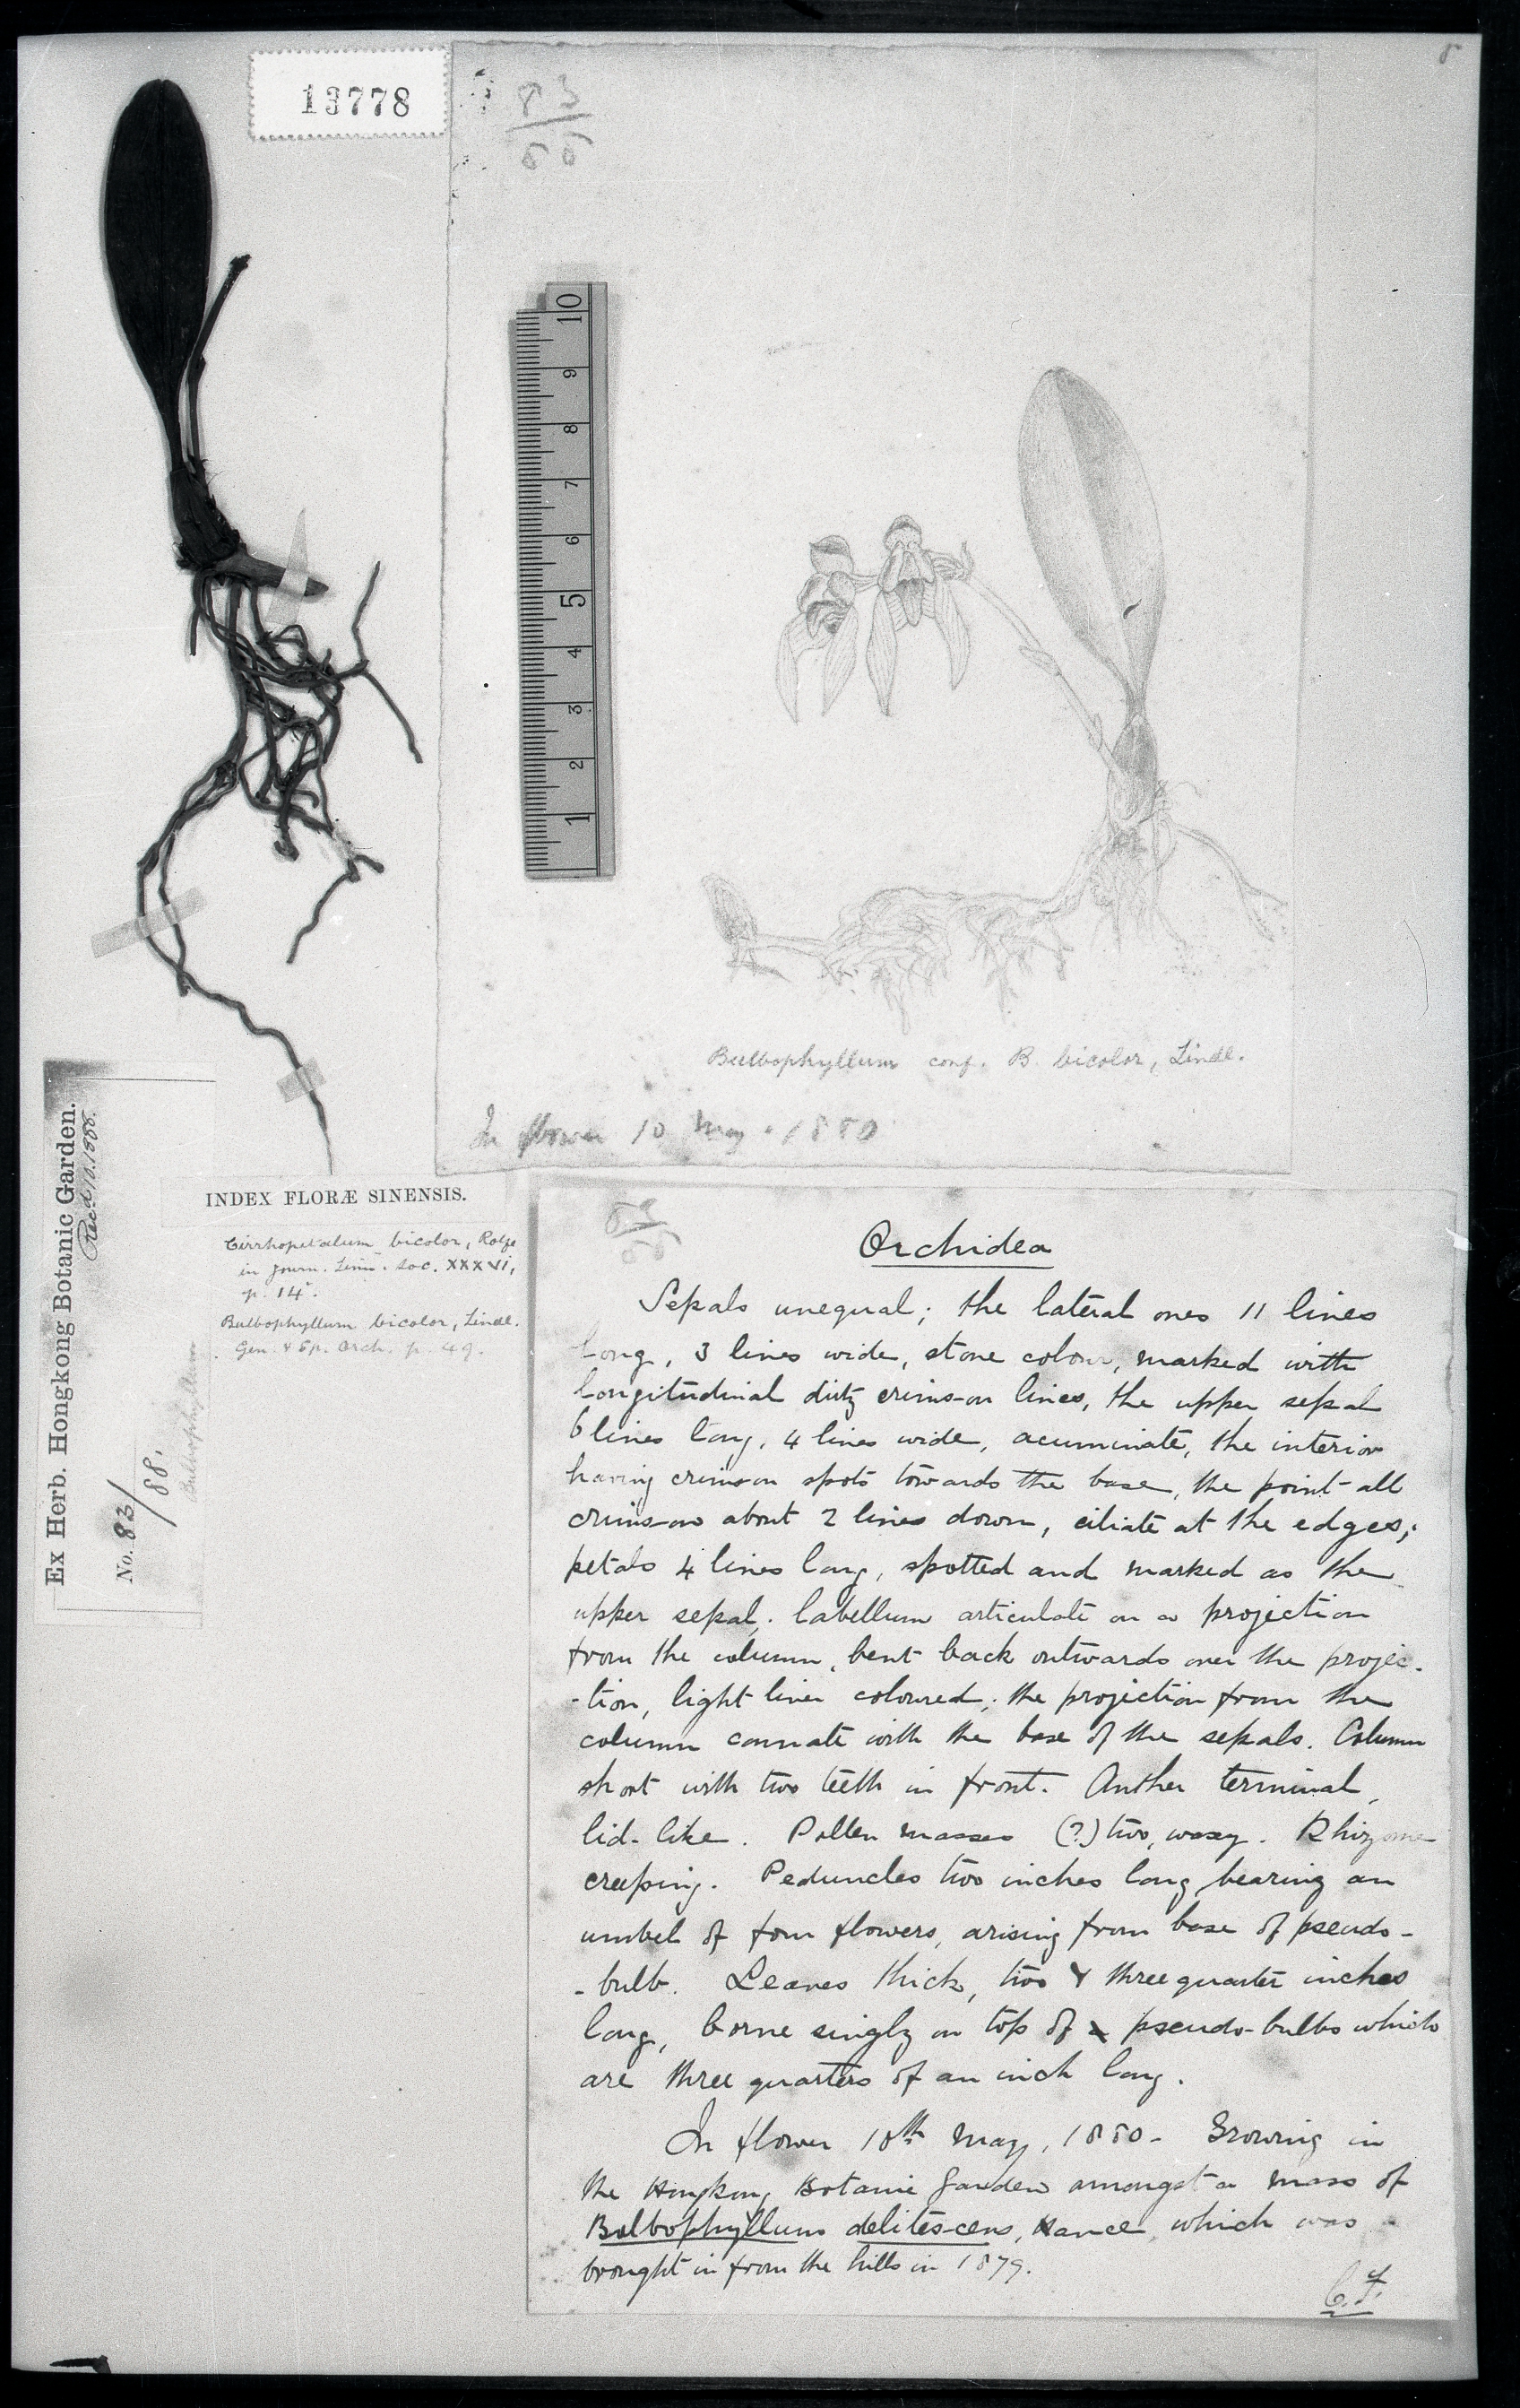 13778
83
10
9
8
7
6
5
4
3
2
1
Bulbophyllum conf. B. bicolor, Lindl.
In flower 10 May. 1880
Ex Herb. Hongkong Botanic Garden.
No. 83/88.
Bulbophyllum
INDEX FLORÆ SINENSIS.
Cirrhopetalum bicolor, Rolfe
in Journ. Linn. Soc. XXXVI,
p. 14.
Bulbophyllum bicolor, Lindl.
Gen. & Sp. Orch. p. 49.
Orchidea
Sepals unequal; the lateral ones 11 lines
long, 3 lines wide, stone colour, marked with
longitudinal dirty crimson lines, the upper sepal
6 lines long, 4 lines wide, acuminate, the interior
having crimson spots towards the base, the point all
crimson about 2 lines down, ciliate at the edges;
petals 4 lines long, spotted and marked as the
upper sepal; labellum articulate on a projection
from the column, bent back outwards over the projec-
-tion, light liver coloured; the projection from the
column connate with the base of the sepals. Column
short with two teeth in front. Anther terminal,
lid-like. Pollen masses (?) two, waxy. Rhizome
creeping. Peduncles two inches long bearing an
umbel of four flowers, arising from base of pseudo-
-bulb. Leaves thick, two & three quarter inches
long, borne singly on top of pseudo-bulbs which
are three quarters of an inch long.
In flower 10th May, 1880- Growing in
the Hongkong Botanic Garden amongst a mass of
Bulbophyllum delitescens, Hance, which was
brought in from the hills in 1879.
C.F.